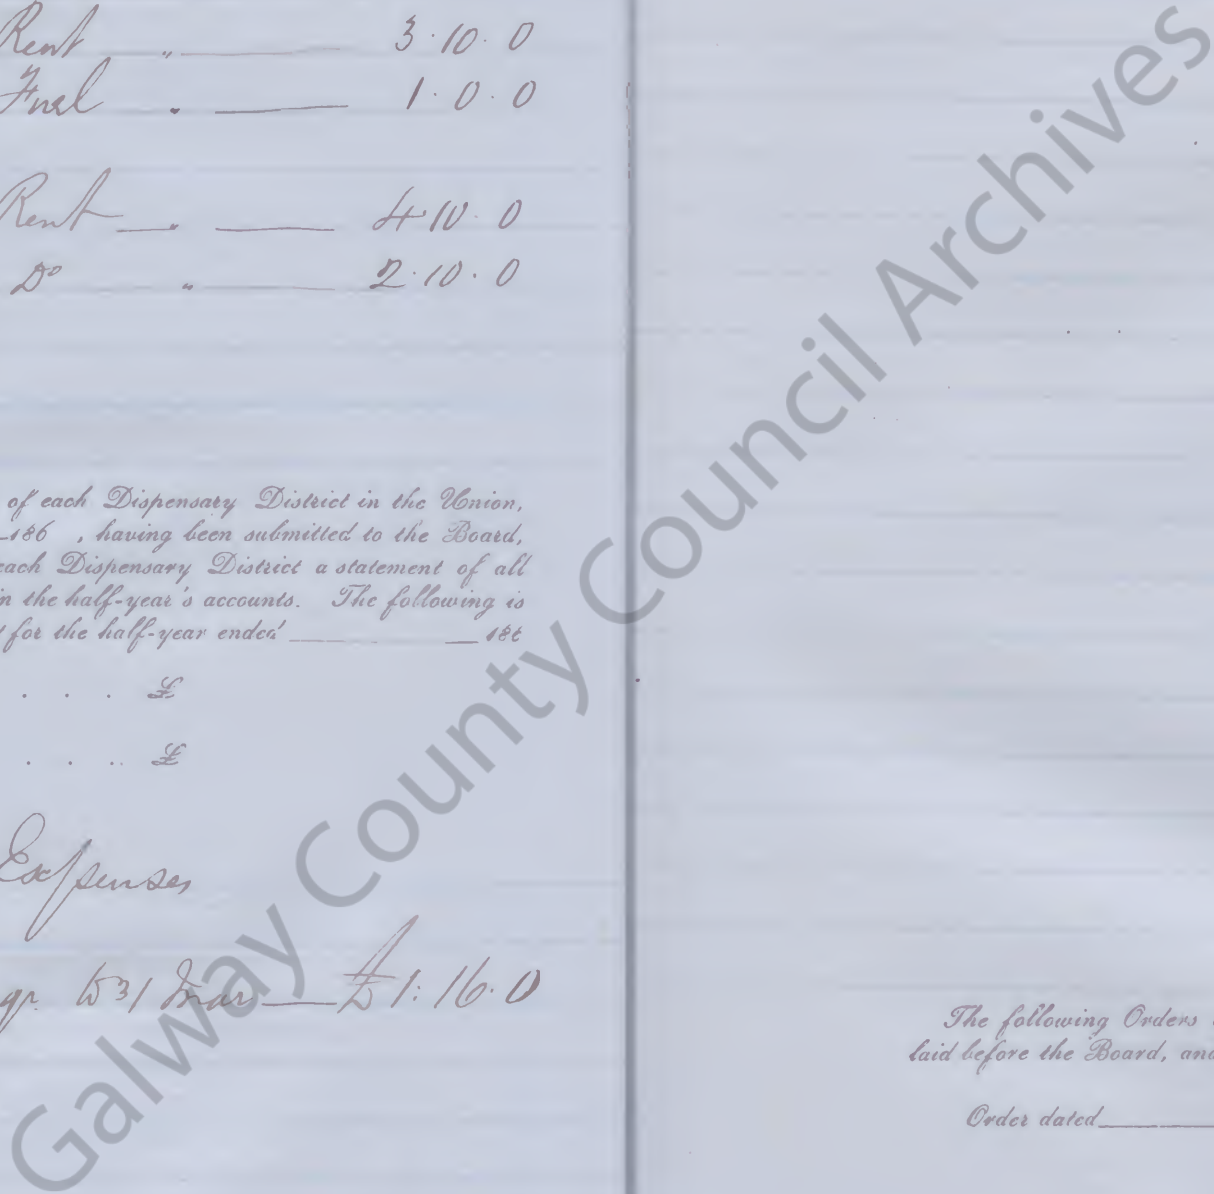 Rent " 3.10.0
Fuel " 1.0.0
Rent " 4.10.0
Do " 2.10.0
of each Dispensary District in the Union,
186 , having been submitted to the Board,
each Dispensary District a statement of all
in the half-year's accounts. The following is
for the half-year ended 186
. . . £
. . . £
Expenses
qr. to 31 Mar £1:16.0
The following Orders
laid before the Board, and
Order dated
Galway County Council Archives